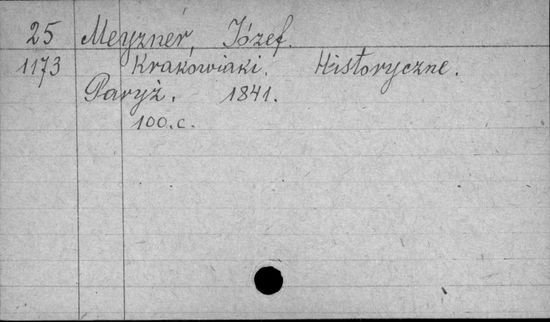 25 Meyzner, Józef.
1173 Krakowiaki. Historyczne.
Paryż. 1841.
100.c.